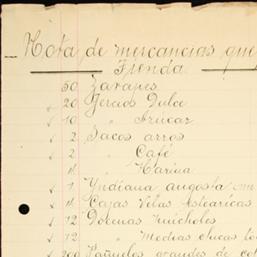 Nota de mercancias que
Tienda
50 Zarapes
✓ 20 Tercios Dulce
✓ 10 " Azucar
✓ 2 Sacos arros
✓ 2 " Café
4 " Harina
✓ 1 Yndiana angosta
✓ 4 Cajas Velas Estearicas
✓ 12 Docenas huicholes
✓ 12 " Medias chicas
✓ 200 Pañuelos grandes de